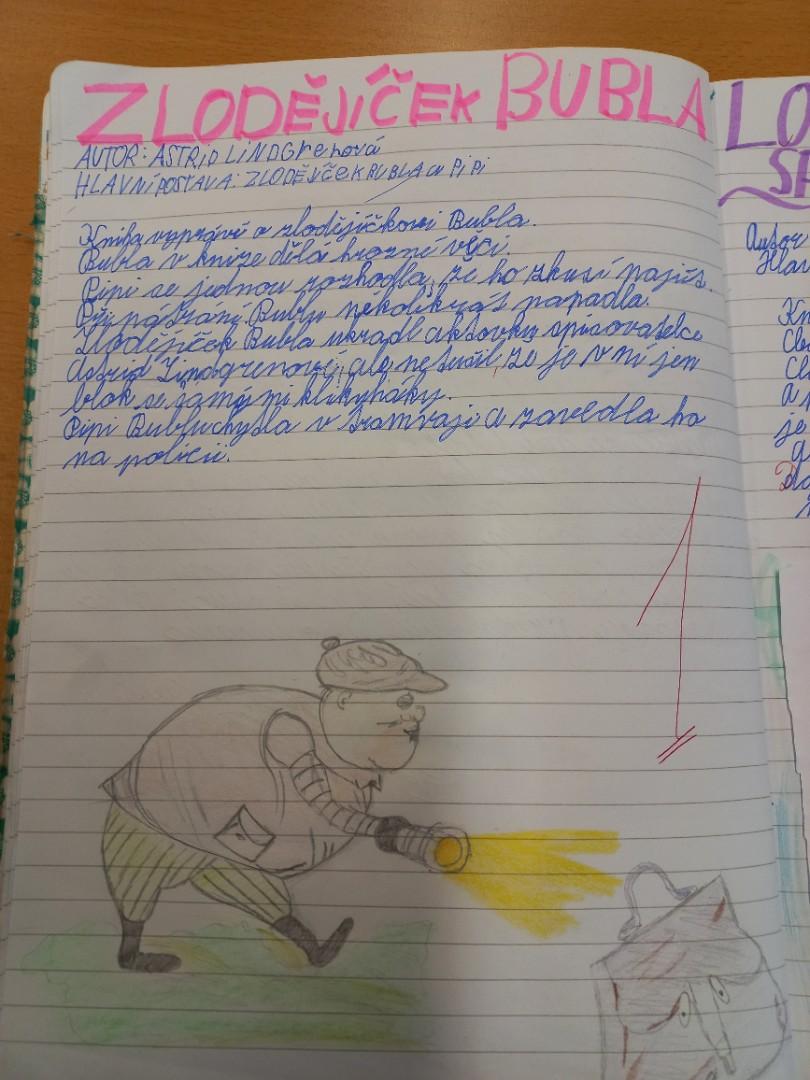 ZLODĚJÍČEK BUBLA
AUTOR: ASTRID LINDGrenová
HLAVNÍ POSTAVA: ZLODĚJÍČEK BUBLA a PiPi
Kniha vypráví o zlodějíčkovi Bubla.
Bubla v knize dělá hrozné věci.
Pipi se jednou rozhodla, že ho zkusí najít.
Při pátrání Bublu několikrát napadla.
Zlodějíček Bubla ukradl aktovku spisovatelce
Astrid Lindgrenové, ale netušil, že je v ní jen
blok se samými klikyháky.
Pipi Bublu chytla v tramvaji a zavedla ho
na policii.
1
LO
SP
Autor
Hlav
Kn
je